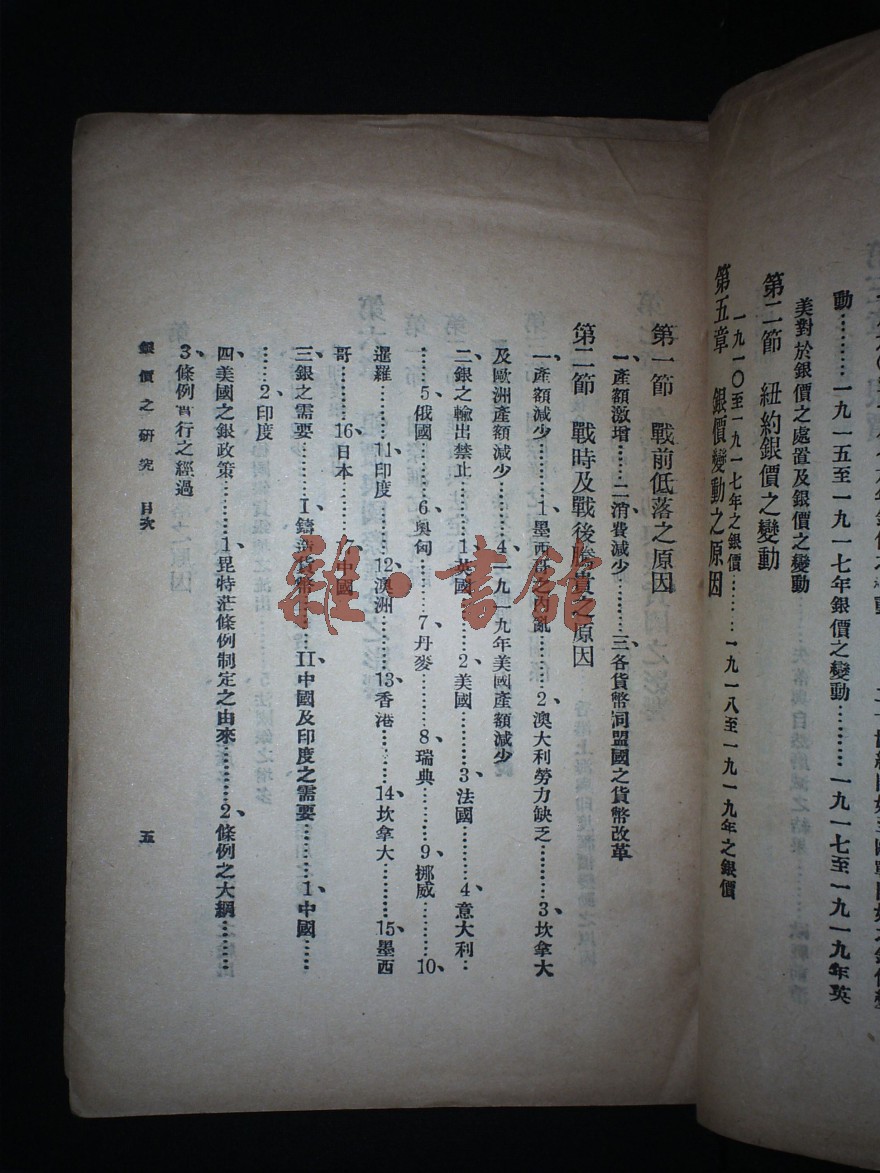 動………一九一五至一九一七年銀價之變動………一九一七至一九一九年英
美對於銀價之處置及銀價之變動
第二節 紐約銀價之變動
一九一〇至一九一七年之銀價……一九一八至一九一九年之銀價
第五章 銀價變動之原因
第一節 戰前低落之原因
一、產額激增……二、消費減少………三、各貨幣同盟國之貨幣改革
第二節 戰時及戰後騰貴之原因
一、產額減少………1、墨西哥之內亂………2、澳大利勞力缺乏………3、坎拿大
及歐洲產額減少………4、一九一九年美國產額減少
二、銀之輸出禁止………1、英國………2、美國………3、法國………4、意大利…
………5、俄國………6、奧匈………7、丹麥………8、瑞典………9、挪威………10、
暹羅………11、印度………12、澳洲………13、香港………14、坎拿大………15、墨西
哥………16、日本………17、中國
三、銀之需要………I、鑄造貨幣………II、中國及印度之需要………1、中國……
……2、印度
四、美國之銀政策………1、毘特茫條例制定之由來………2、條例之大綱………
3、條例實行之經過
銀價之研究 目次
五
雜·書館